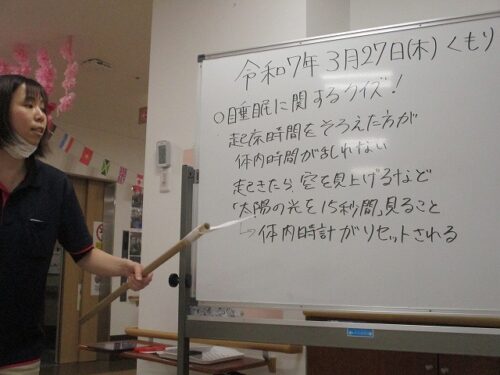 令和7年 3月27日(木) くもり
○睡眠に関するクイズ!
起床時間をそろえた方が
体内時間がましれない
起きたら、空を見上げるなど
「太陽の光を15秒間」見ること
↳体内時計がリセットされる